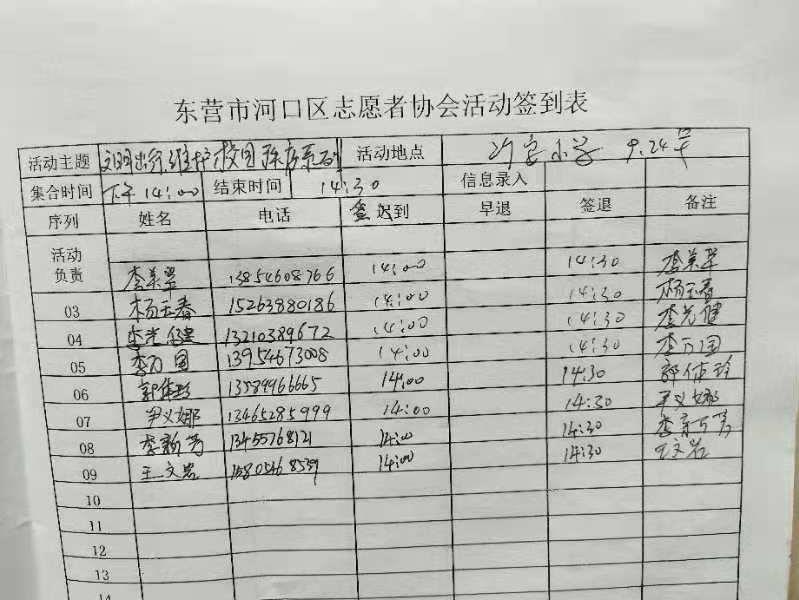 东营市河口区志愿者协会活动签到表
活动主题 文明出行,维护校园秩序系列 活动地点 小学 9.24年
集合时间 下午14:00 结束时间 14:30 信息录入
序列 姓名 电话 签迟到 早退 签退 备注
活动
负责 李美翠 13854608766 14:00 14:30 李美翠
03 杨玉春 15263880186 14:00 14:30 杨玉春
04 李光健 13210389672 14:00 14:30 李光健
05 李万国 13954673008 14:00 14:30 李万国
06 郭伟珍 13589966665 14:00 14:30 郭伟珍
07 尹义娜 13465285999 14:00 14:30 尹义娜
08 李新芳 13455768121 14:00 14:30
09 王文岩 14:00 14:30 王文岩
10
11
12
13
14